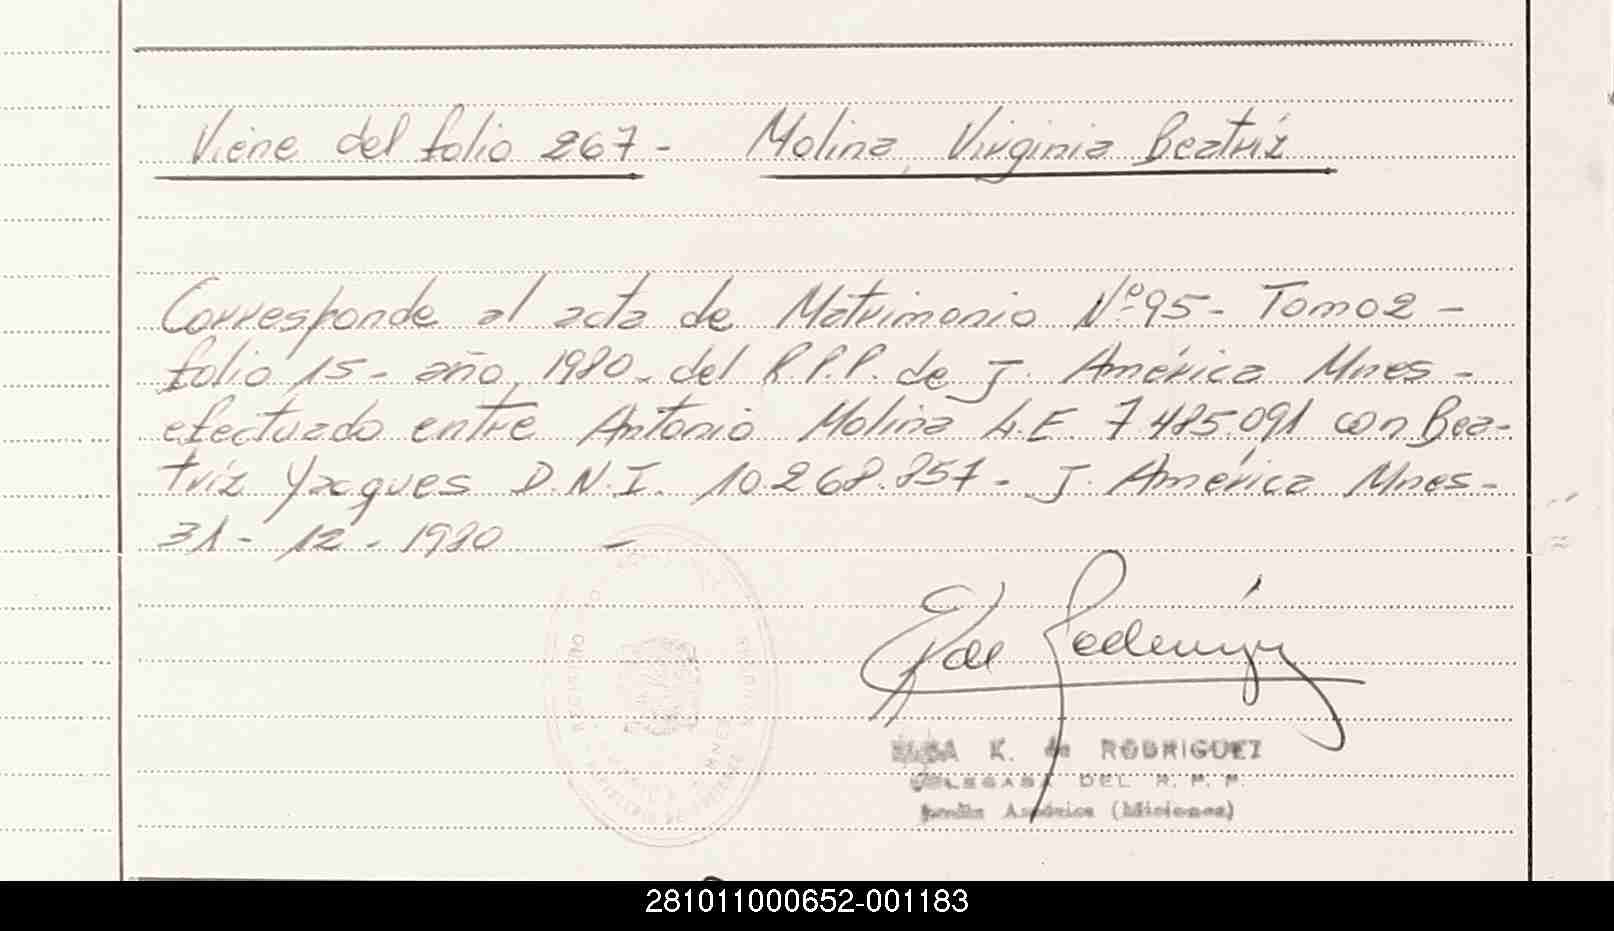 Viene del folio 267 - Molina, Virginia Beatríz
Corresponde al acta de Matrimonio Nº 95 - Tomo 2 -
folio 15 - año, 1980 - del R.P.P. de J. América Mnes -
efectuado entre Antonio Molina L.E. 7.485.091 con Bea-
tríz Yacques D.N.I. 10.268.857 - J. América Mnes -
31 - 12 - 1980 -
ELBA K. de RODRIGUEZ
DELEGADA DEL R. P. P.
Jardín América (Misiones)
281011000652-001183